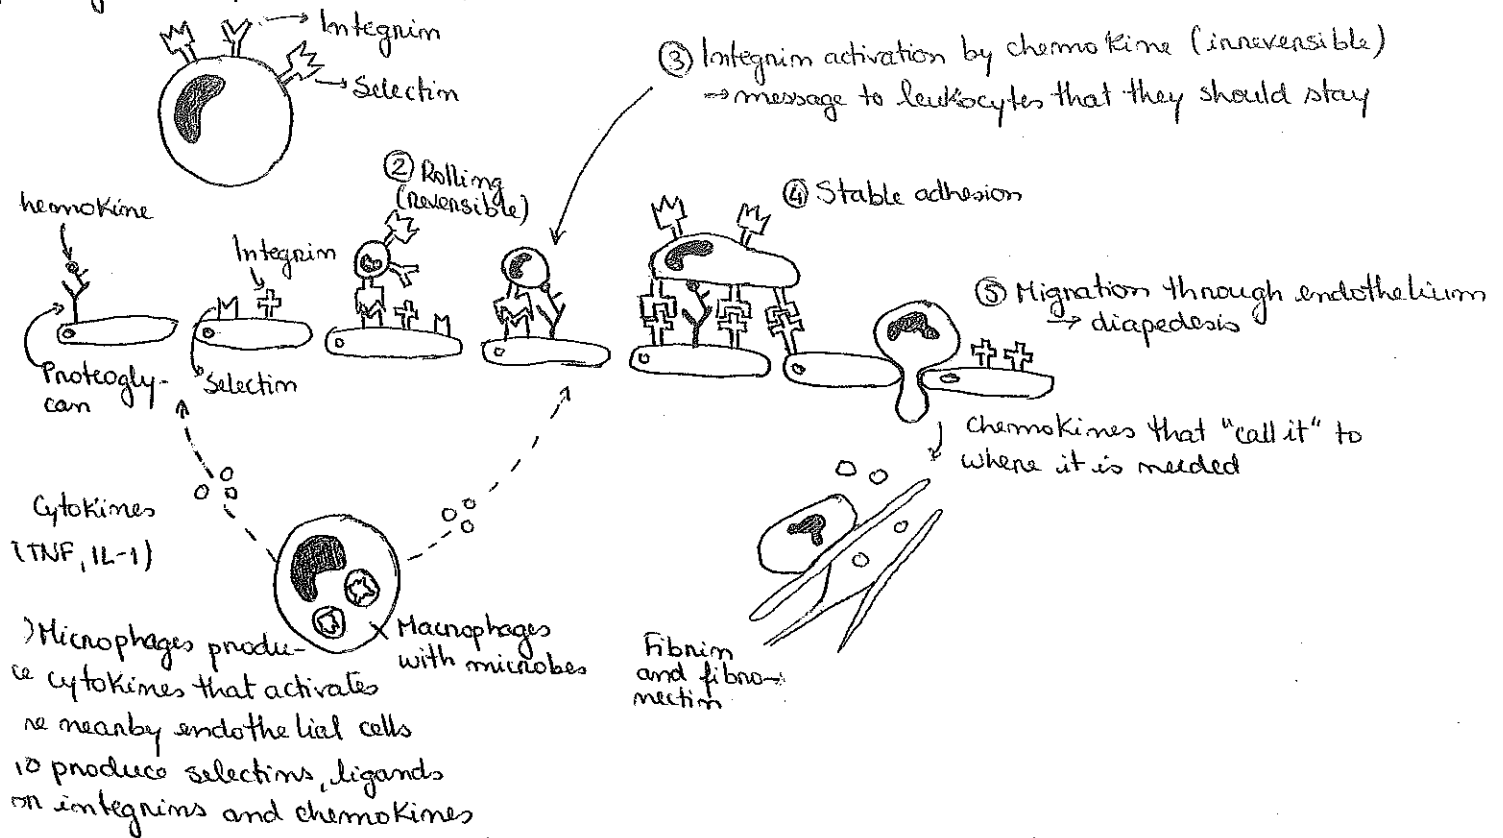 Integrin
Selectin
③ Integrin activation by chemokine (irreversible)
→ message to leukocytes that they should stay
② Rolling
(reversible)
④ Stable adhesion
hemokine
Integrin
⑤ Migration through endothelium
→ diapedesis
Proteogly-
can
Selectin
chemokines that "call it" to
where it is needed
Cytokines
(TNF, IL-1)
)Microphages produ-
ce cytokines that activates
he nearby endothelial cells
to produce selectins, ligands
on integrins and chemokines
Macrophages
with microbes
Fibrin
and fibro-
nectin